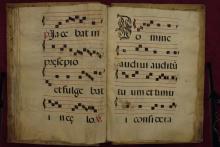 p. Jace bat in
præsepio
et fulge bat
in cę lo.
Do mine
audivi auditū
tuum et timu
i consi dera